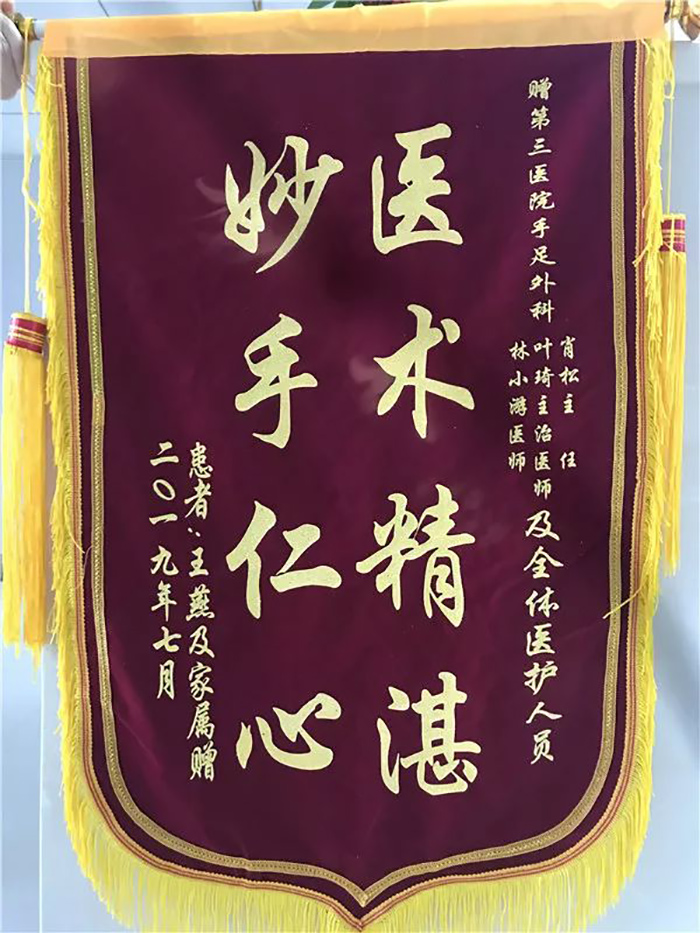 赠第三医院手足外科
肖松主任
叶琦主治医师
林小游医师
及全体医护人员
医术精湛
妙手仁心
患者:王燕及家属赠
二〇一九年七月